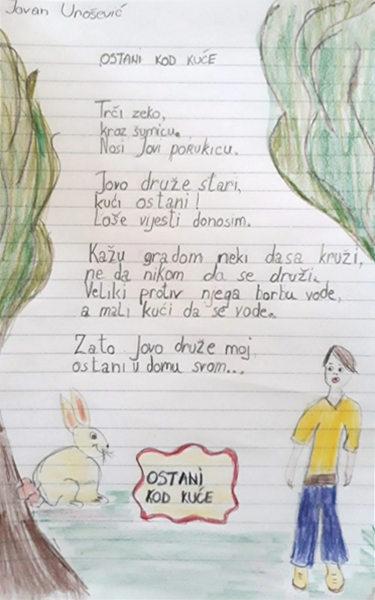 Jovan Urošević
OSTANI KOD KUĆE
Trči zeko,
kroz šumicu.
Nosi Jovi poRukicu.
Jovo druže stari,
kući ostani!
Loše vijesti donosim.
Kažu gradom neki dasa kruži,
ne da nikom da se druži.
Veliki protiv njega borbu vode,
a mali kući da se vode.
Zato Jovo druže moj
ostani u domu svom...
OSTANI
KOD KUĆE